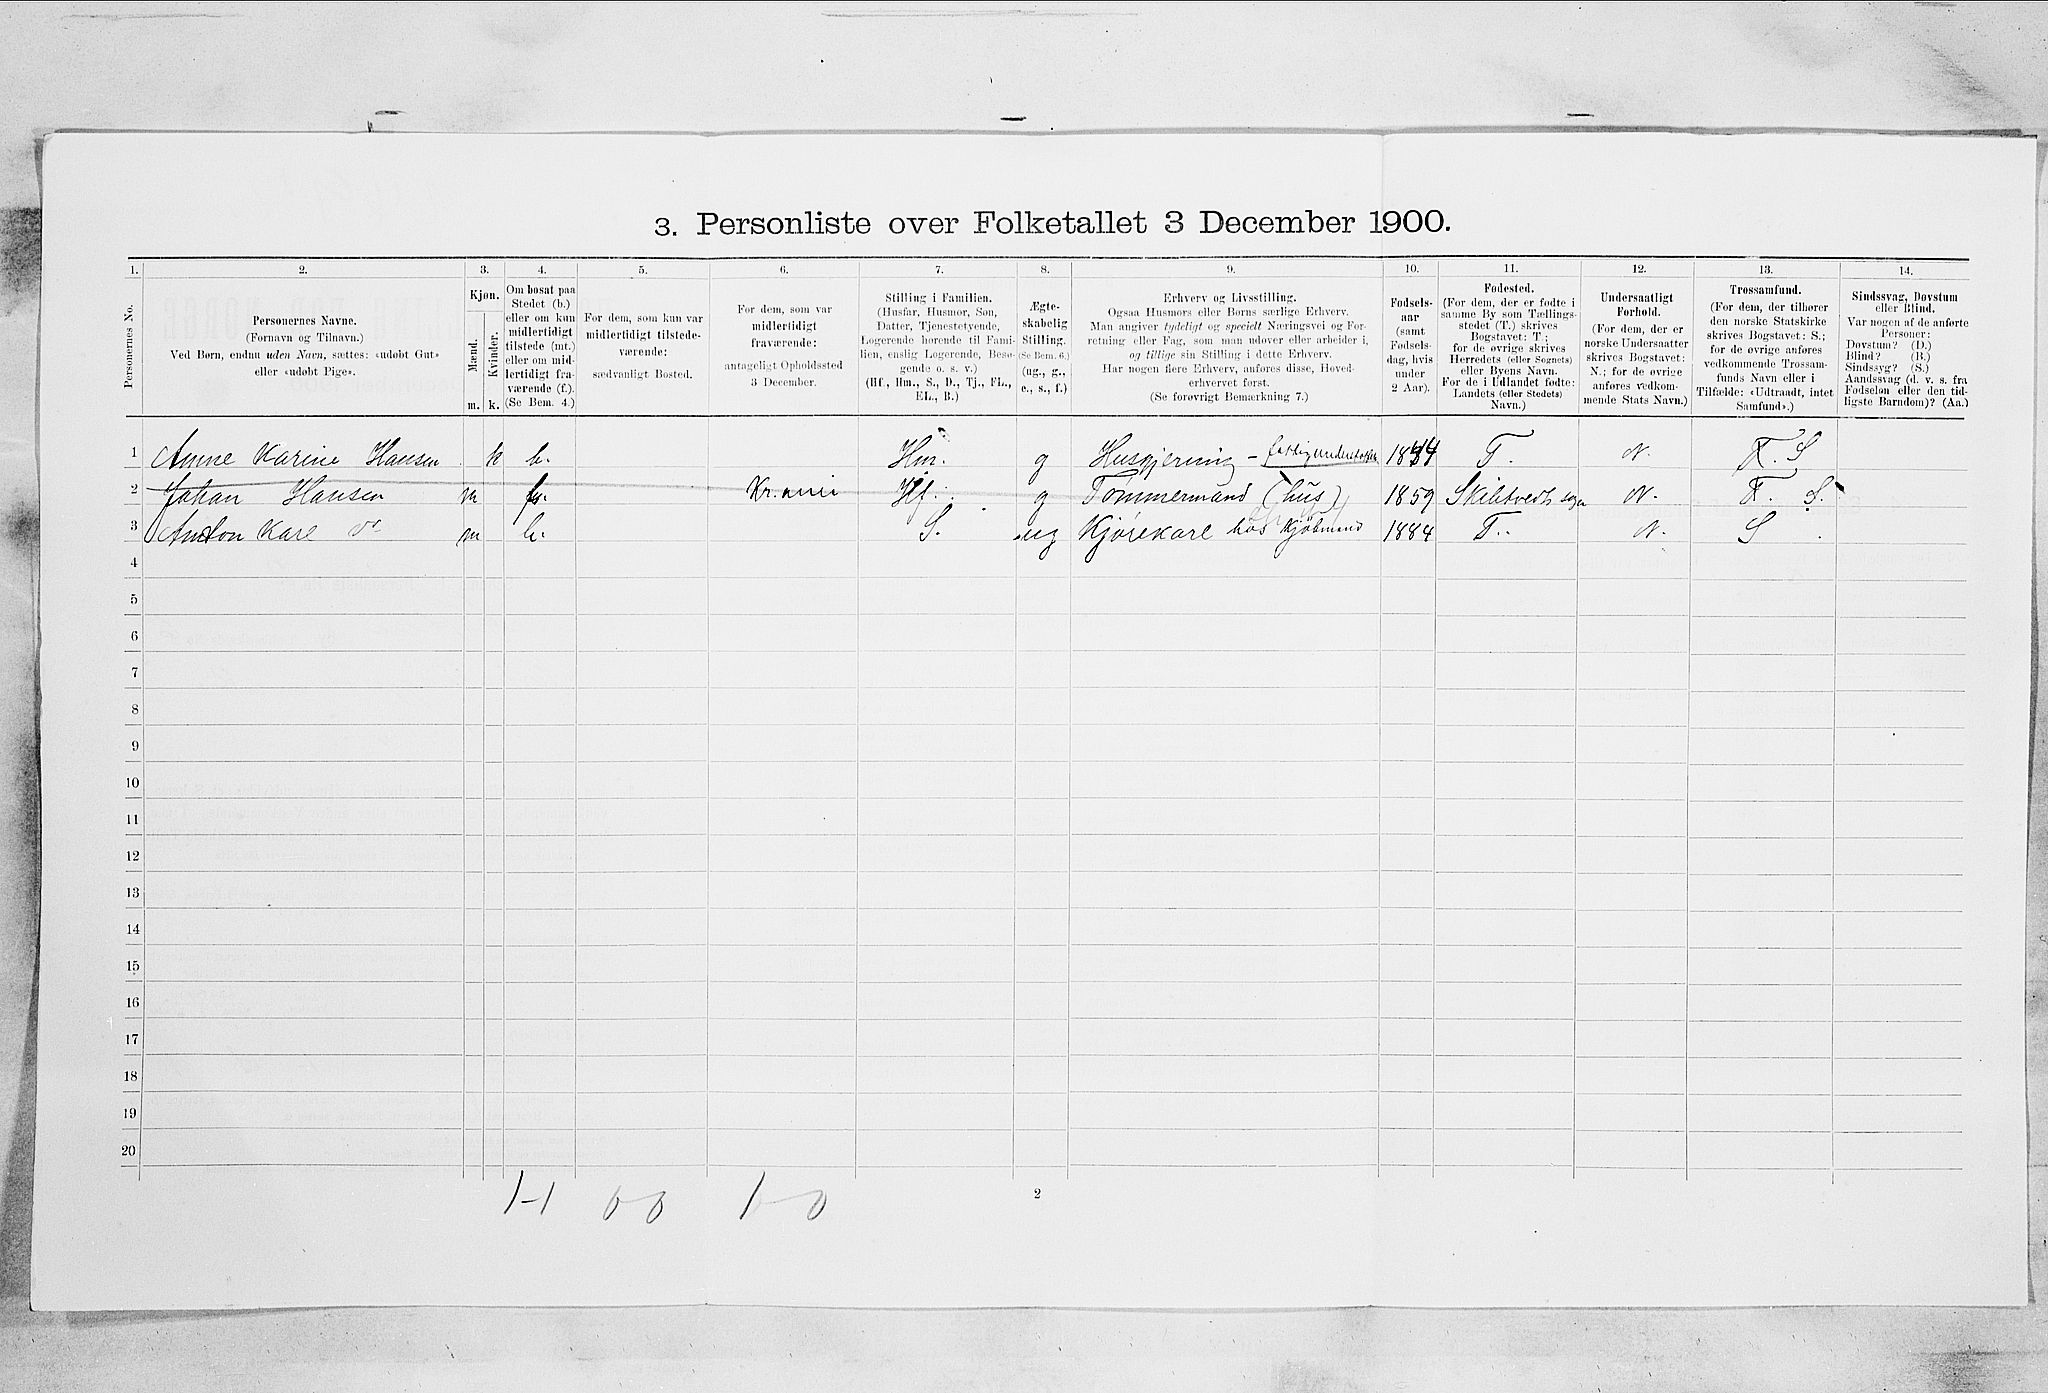 3. Personliste over Folketallet 3 December 1900.
1. 2. 3. 4. 5. 6. 7. 8. 9. 10. 11. 12. 13. 14.
Personernes No.
Personernes Navne.
(Fornavn og Tilnavn.)
Ved Børn, endnu uden Navn, sættes: «udøbt Gut»
eller «udøbt Pige».
Kjøn.
Mænd.
Kvinder.
m. k.
Om bosat paa
Stedet (b.)
eller om kun
midlertidigt
tilstede (mt.)
eller om mid-
lertidigt fra-
værende (f.).
(Se Bem. 4.)
For dem, som kun var
midlertidigt tilstede-
værende:
sædvanligt Bosted.
For dem, som var
midlertidigt
fraværende:
antageligt Opholdssted
3 December.
Stilling i Familien.
(Husfar, Husmor, Søn,
Datter, Tjenestetyende,
Logerende hørende til Fami-
lien, enslig Logerende, Besø-
gende o. s. v.)
(Hf., Hm., S., D., Tj., FL.,
EL., B.)
Ægte-
skabelig
Stilling.
(Se Bem. 6.)
(ug., g.,
e., s., f.)
Erhverv og Livsstilling.
Ogsaa Husmors eller Børns særlige Erhverv.
Man angiver tydeligt og specielt Næringsvei og For-
retning eller Fag, som man udøver eller arbeider i,
og tillige sin Stilling i dette Erhverv.
Har nogen flere Erhverv, anføres disse, Hoved-
erhvervet først.
(Se forøvrigt Bemærkning 7.)
Fødsels-
aar
(samt
Fødsels-
dag, hvis
under
2 Aar).
Fødested.
(For dem, der er fødte i
samme By som Tællings-
stedet (T.) skrives
Bogstavet: T.;
for de øvrige skrives
Herredets (eller Sognets)
eller Byens Navn.
For de i Udlandet fødte:
Landets (eller Stedets)
Navn.)
Undersaatligt
Forhold.
(For dem, der er
norske Undersaatter
skrives Bogstavet:
N.; for de øvrige
anføres vedkom-
mende Stats Navn.)
Trossamfund.
(For dem, der tilhører
den norske Statskirke
skrives Bogstavet: S.;
for de øvrige anføres
vedkommende Trossam-
funds Navn eller i
Tilfælde: «Udtraadt, intet
Samfund».)
Sindssvag, Døvstum
eller Blind.
Var nogen af de anførte
Personer:
Døvstum? (D.)
Blind? (B.)
Sindssyg? (S.)
Aandssvag (d. v. s. fra
Fødselen eller den tid-
ligste Barndom)? (Aa.)
1 Anne Karine Hansen k b. Hm. g Husgjerning – fattigunderstøttet T. N. S
2 Johan Hansen m f. Kr.ania Hf. g Tømmermand (hus) 1859 N. S.
3 Anton Karl m b. S. ug Kjørekarl hos Kjøbmand 1884 T. N. S
4
5
6
7
8
9
10
11
12
13
14
15
16
17
18
19
20
1-1 0 0 1-0
2